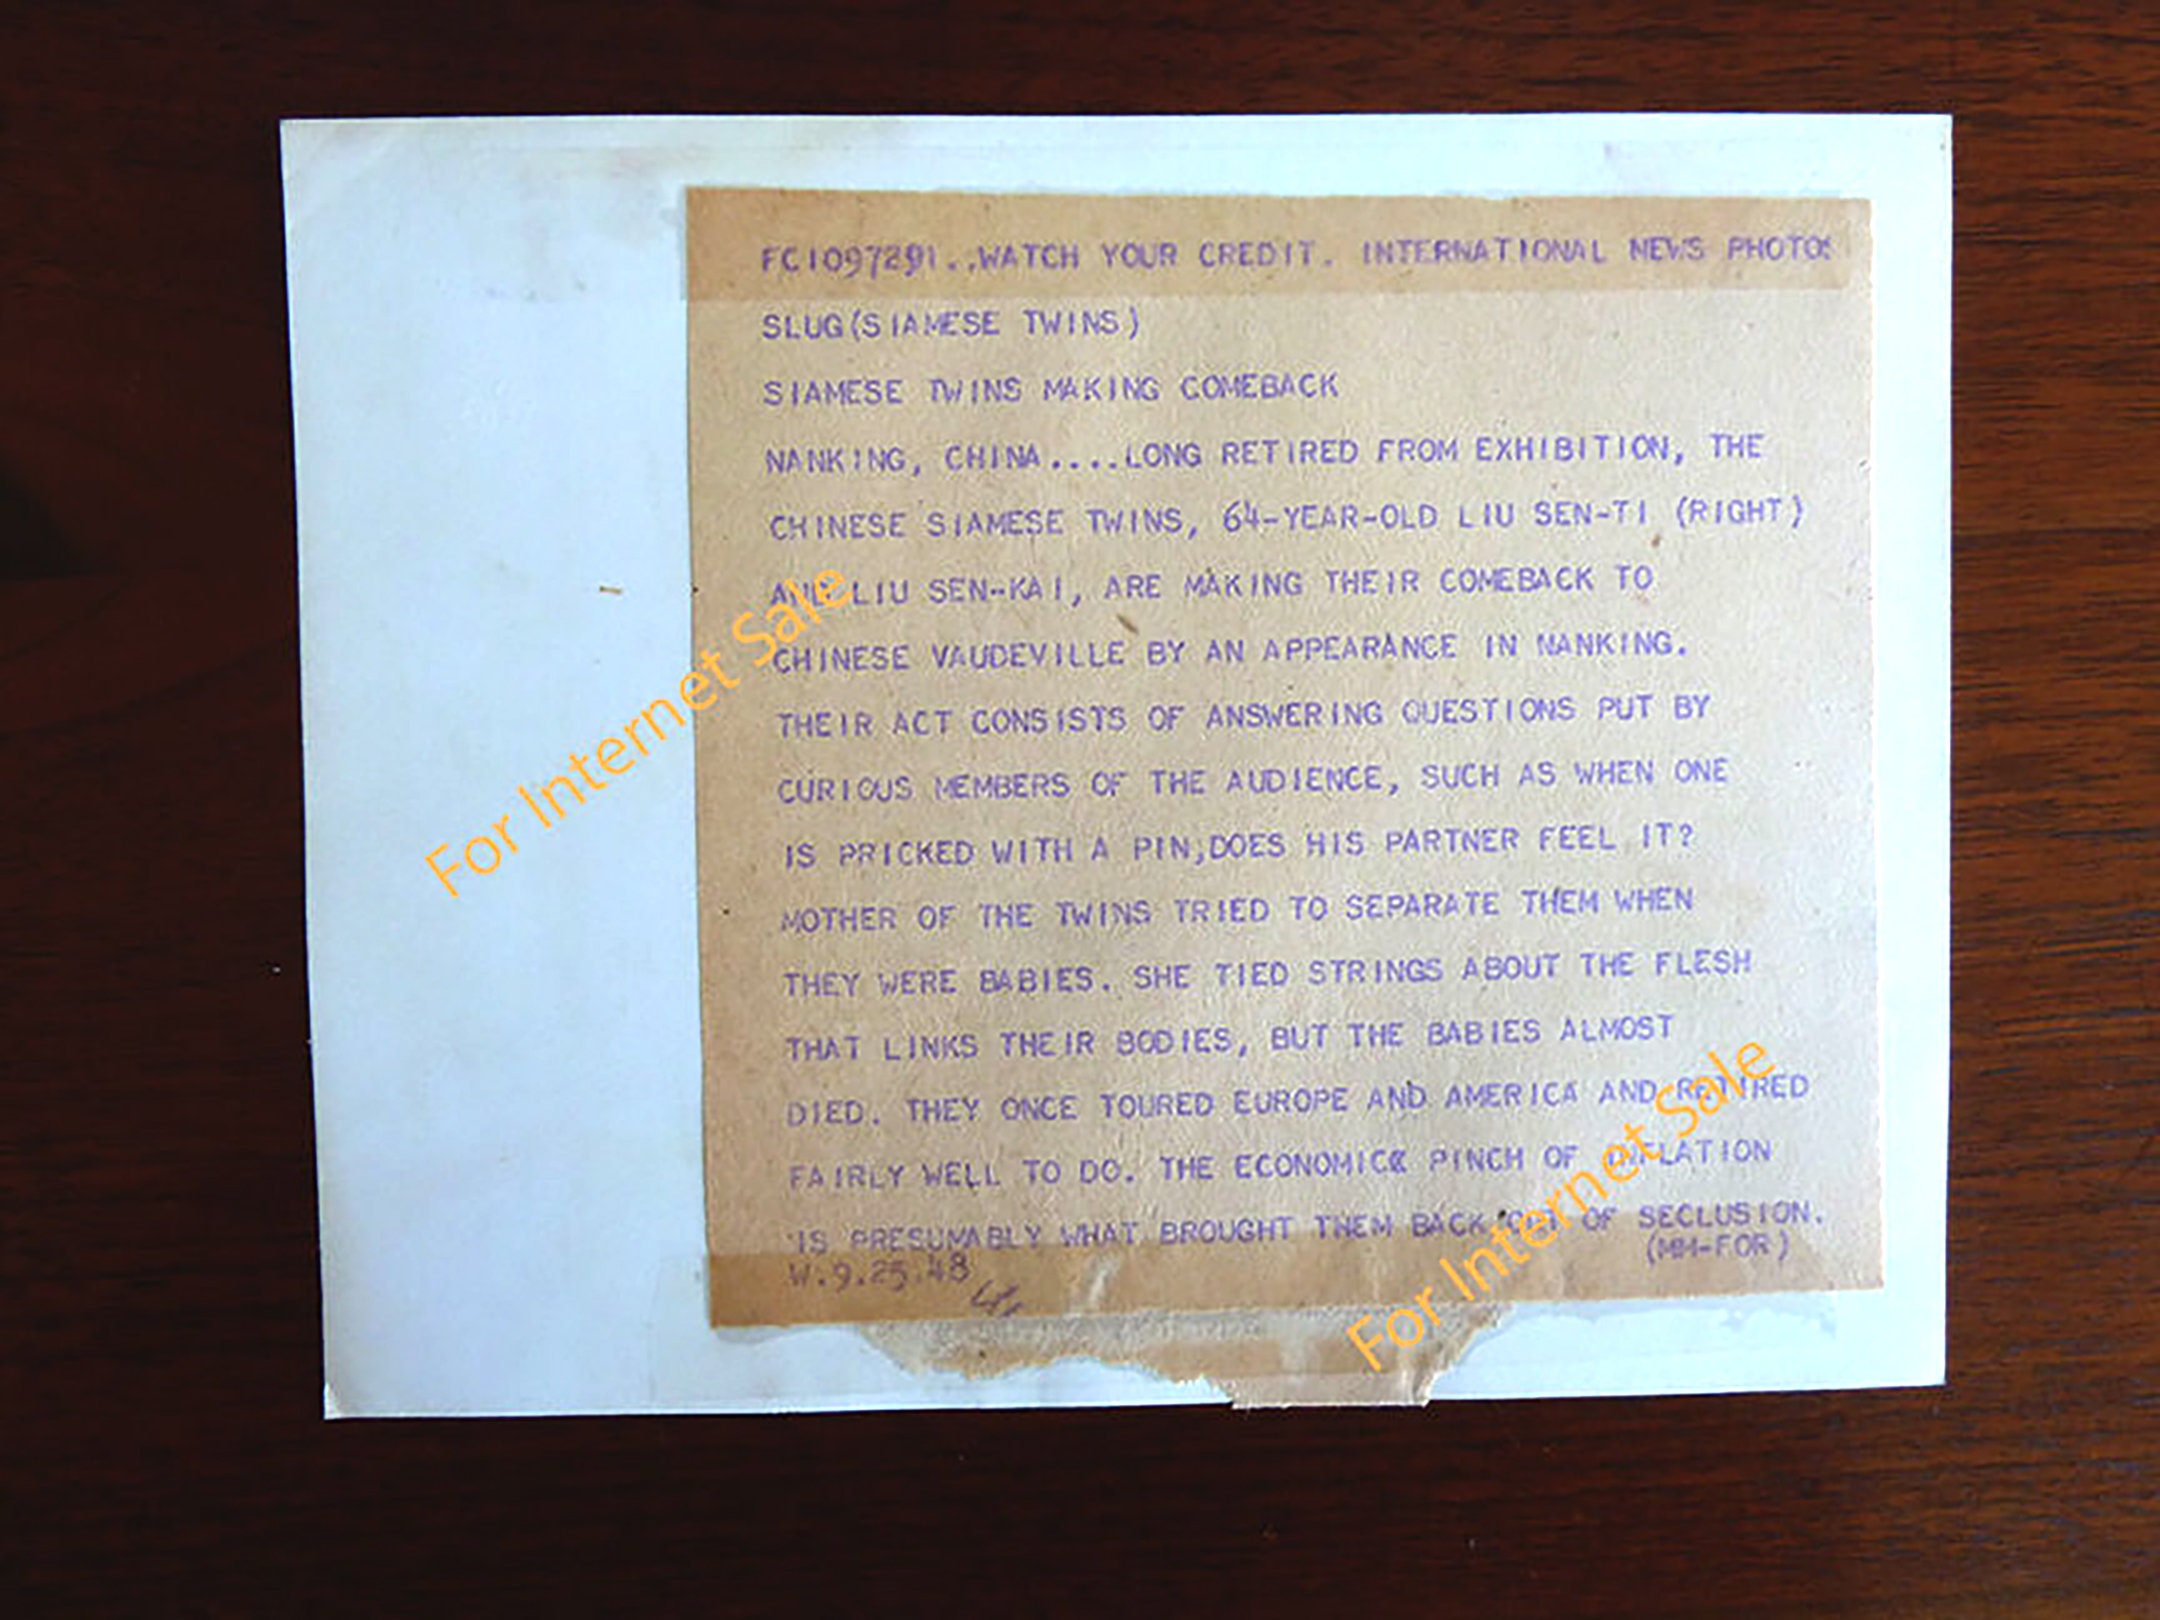 FC1097291..WATCH YOUR CREDIT. INTERNATIONAL NEWS PHOTOS
SLUG(SIAMESE TWINS)
SIAMESE TWINS MAKING COMEBACK
NANKING, CHINA....LONG RETIRED FROM EXHIBITION, THE
CHINESE SIAMESE TWINS, 64-YEAR-OLD LIU SEN-TI (RIGHT)
AND LIU SEN-KAI, ARE MAKING THEIR COMEBACK TO
CHINESE VAUDEVILLE BY AN APPEARANCE IN NANKING.
THEIR ACT CONSISTS OF ANSWERING QUESTIONS PUT BY
CURIOUS MEMBERS OF THE AUDIENCE, SUCH AS WHEN ONE
IS PRICKED WITH A PIN,DOES HIS PARTNER FEEL IT?
MOTHER OF THE TWINS TRIED TO SEPARATE THEM WHEN
THEY WERE BABIES. SHE TIED STRINGS ABOUT THE FLESH
THAT LINKS THEIR BODIES, BUT THE BABIES ALMOST
DIED. THEY ONCE TOURED EUROPE AND AMERICA AND RETIRED
FAIRLY WELL TO DO. THE ECONOMIC PINCH OF INFLATION
IS PRESUMABLY WHAT BROUGHT THEM BACK OUT OF SECLUSION.
(MM-FOR)
W.9.25.48
For Internet Sale
For Internet Sale